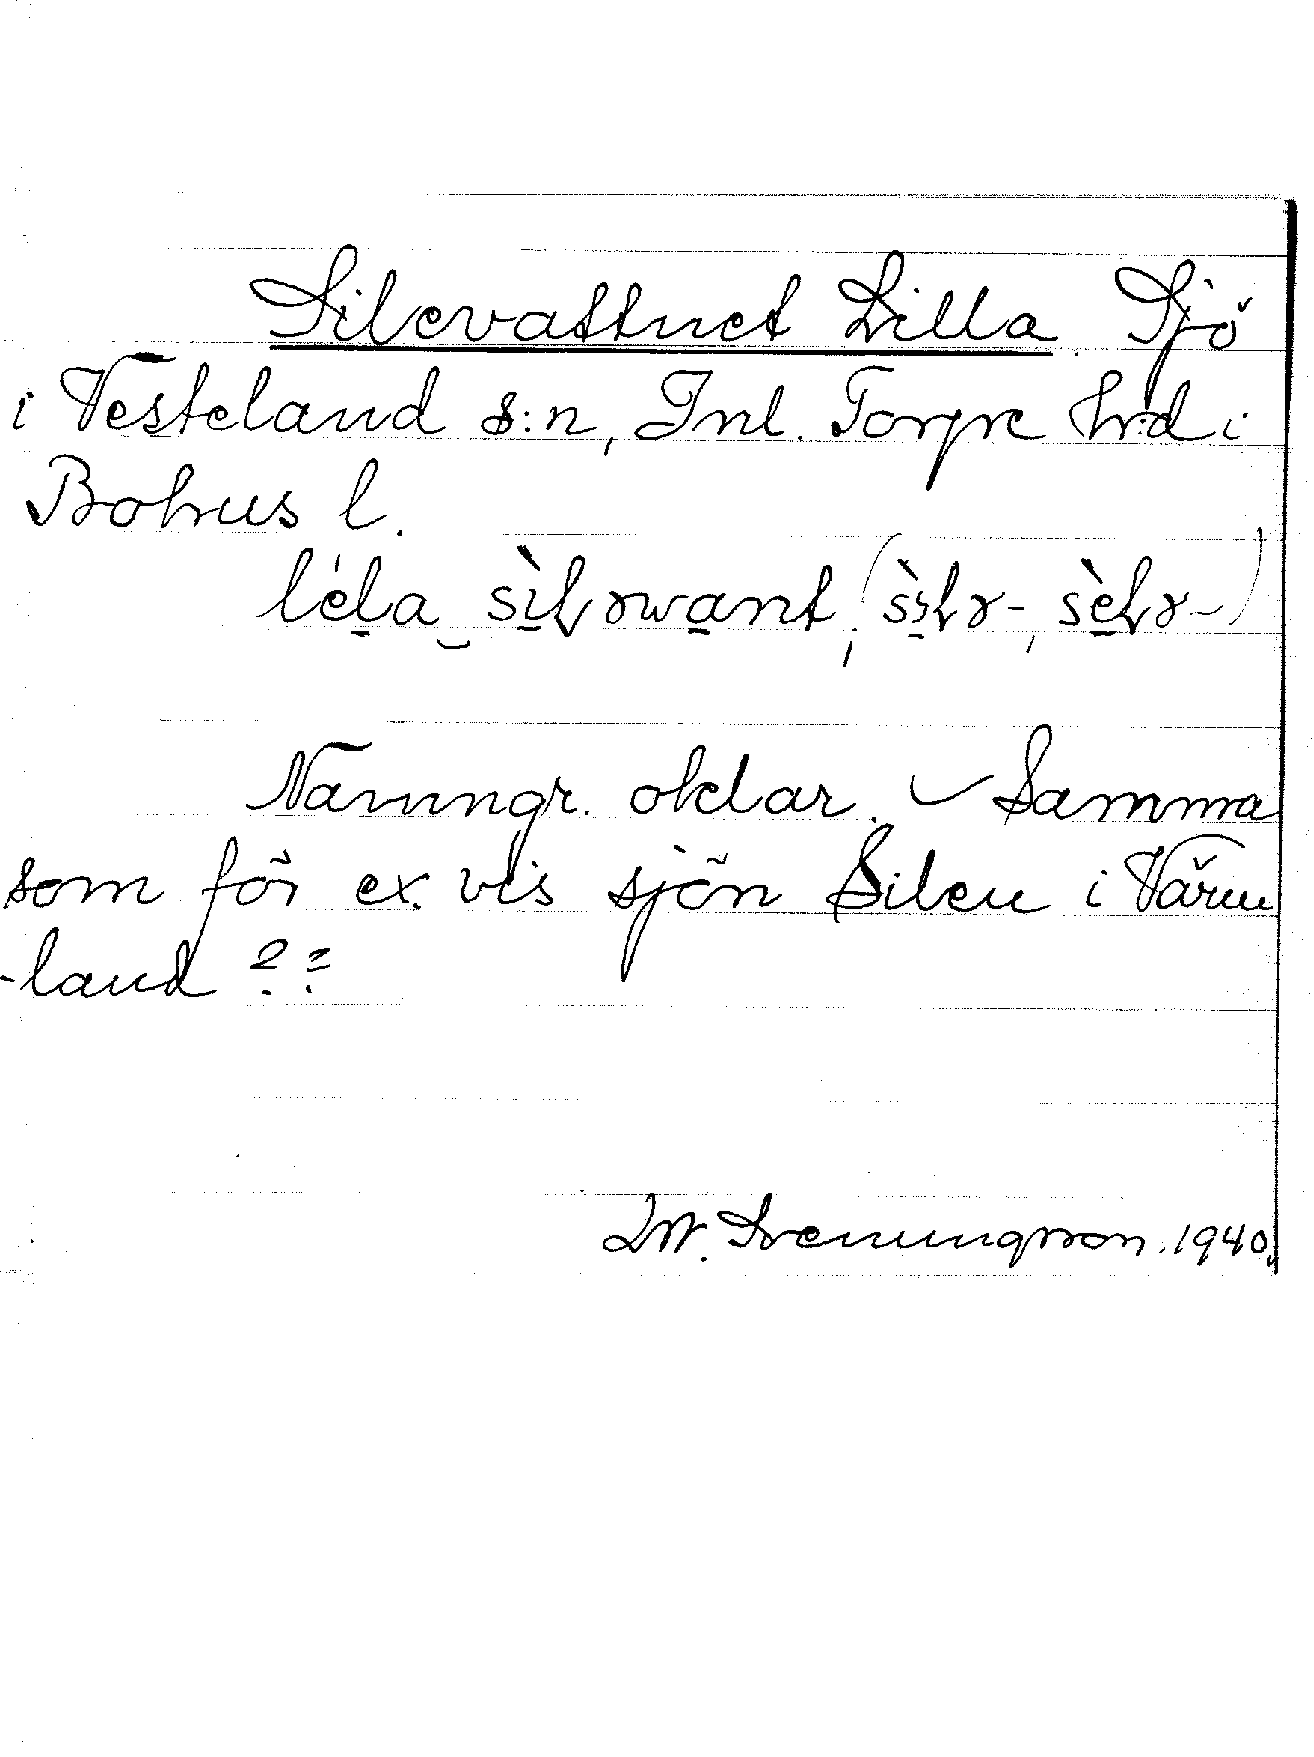 Silevattnet Lilla Sjö
i Vesteland s:n, Inl. Torpe hrd i
Bohus l.
léla sìlɤwant, (sìlɤ-, sèlɤ-)
Namngr. oklar. – Samma
som för ex. vis sjön Silen i Värm
-land ??
1940.